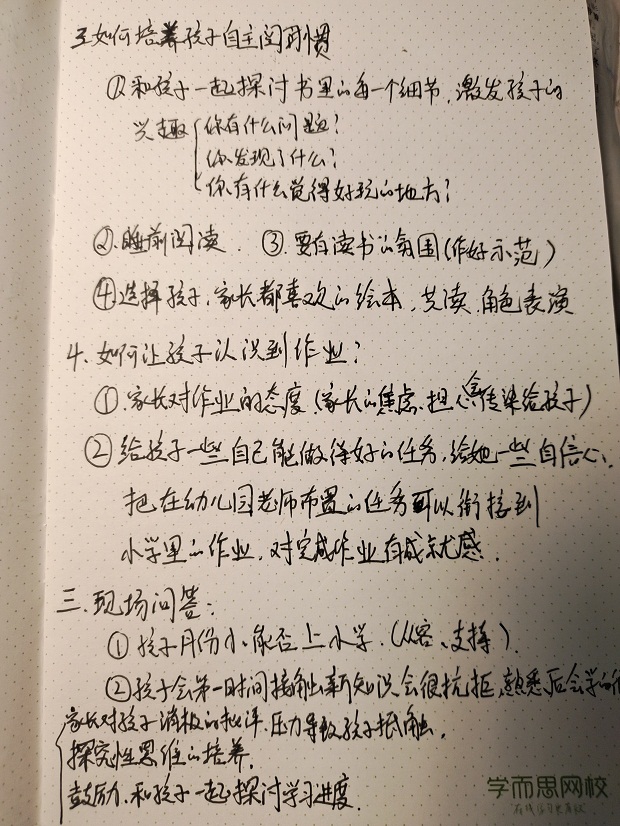 3.如何培养孩子自主阅读习惯
①和孩子一起探讨书里的每一个细节,激发孩子的
兴趣{你有什么问题?
你发现了什么?
你有什么觉得好玩的地方?
②.睡前阅读. ③.要有读书的氛围(作好示范)
④选择孩子.家长都喜欢的绘本,共读.角色表演
4.如何让孩子认识到作业?
①.家长对作业的态度(家长的焦虑.担忧会传染给孩子)
②给孩子一些自己能做得好的任务,给她一些自信心、
把在幼儿园老师布置的任务可以衔接到
小学里的作业,对完成作业有成就感.
三.现场问答:
①孩子月份小.能否上小学.(从容、支持).
②孩子会第一时间接触新知识会很抗拒,熟悉后会学的很
家长对孩子消极的批评.压力导致孩子抵触.
探究性思维的培养.
鼓励.和孩子一起探讨学习进度.
学而思网校